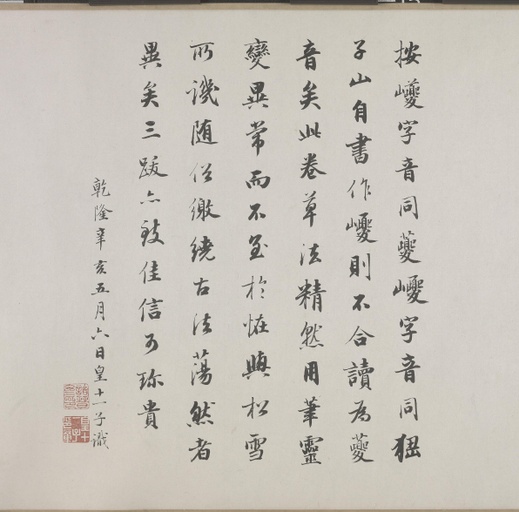 按巙字音同蘷巎字音同
子山自書作巎則不合讀為蘷
音矣此卷草法精然用筆靈
變異常而不至於怪與松雪
所譏隨俗繳繞古法蕩然者
異矣三跋亦致佳信可珍貴
乾隆辛亥五月六日皇十一子識